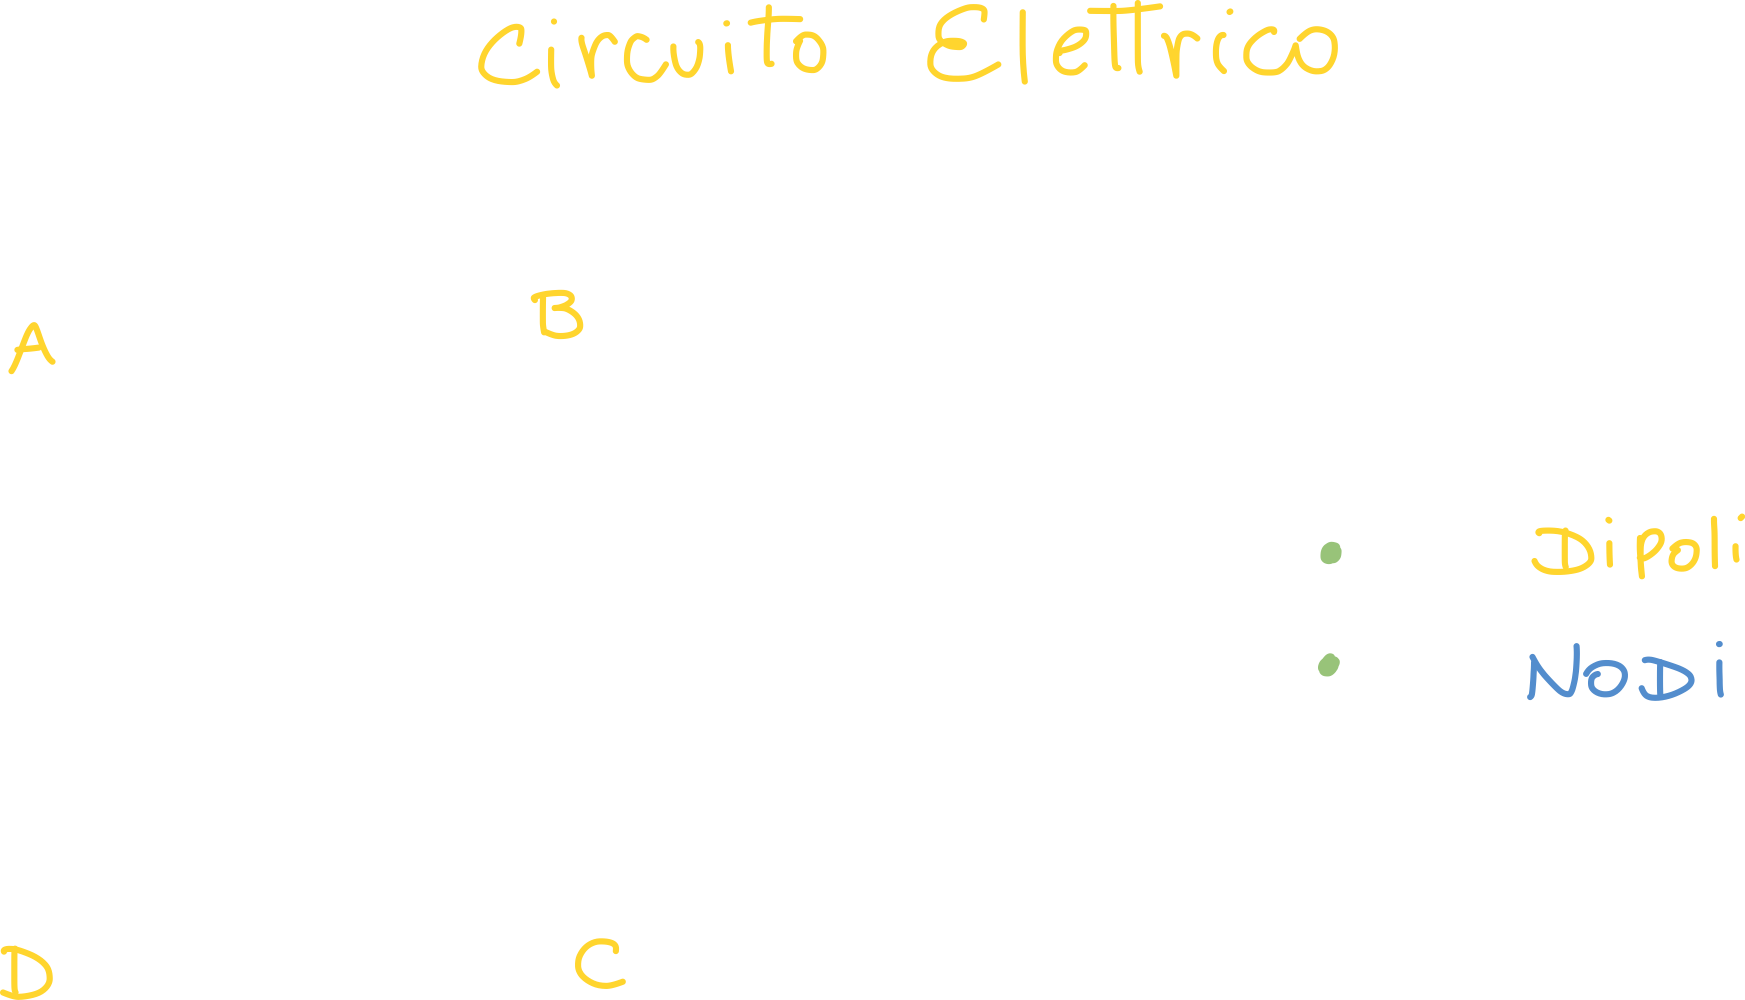 Circuito Elettrico
B
A
• Dipoli
• NODi
D
C